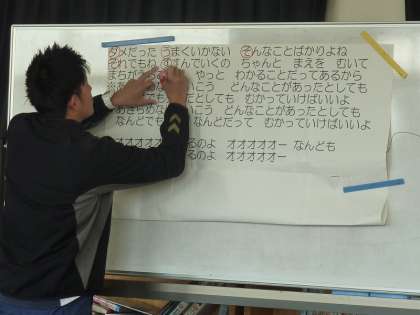 ダメだった うまくいかない そんなことばかりよね
それでもね すすんでいくの ちゃんと まえを むいて
まちが やっと わかることだってあるから
いこう どんなことがあったとしても
たとしても むかっていけばいいよ
いこう どんなことがあったとしても
なんどで なんどだって むかっていけばいいよ
オオオオ るのよ オオオオオー なんども
るのよ オオオオオー